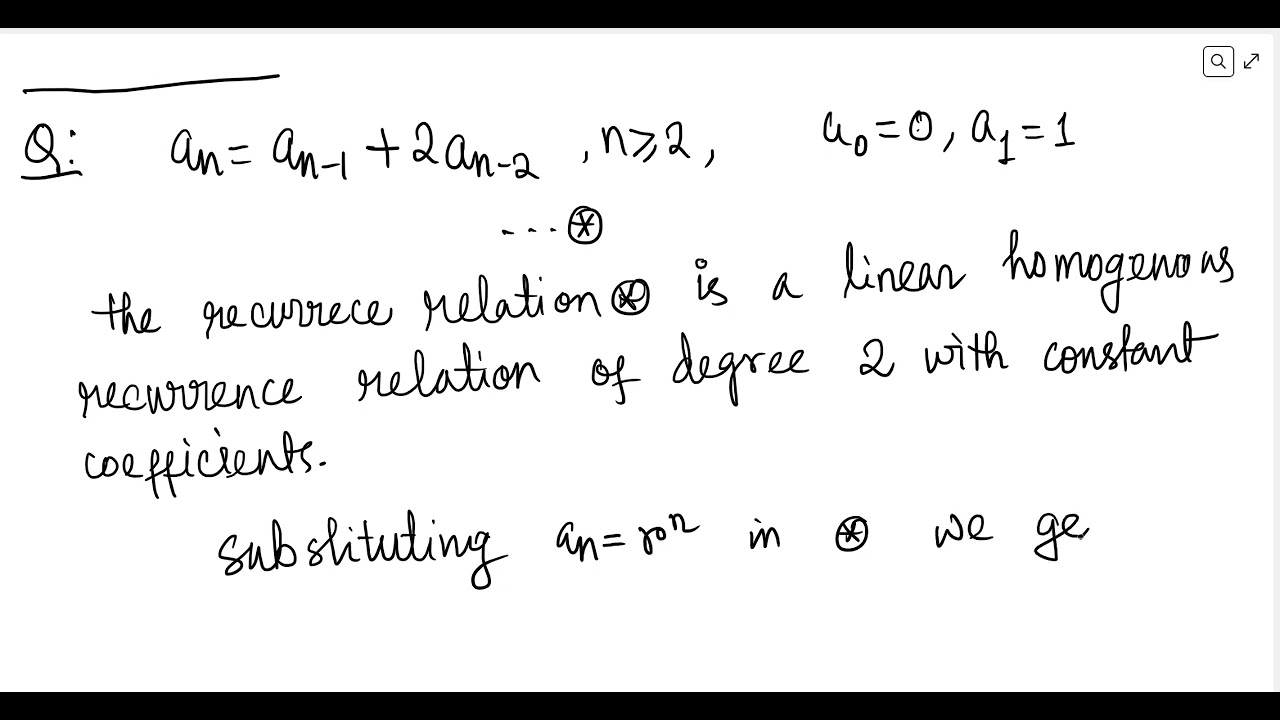 Q: aₙ = aₙ₋₁ + 2aₙ₋₂ , n ≥ 2 , a₀ = 0 , a₁ = 1
... ⊛
the recurrece relation ⊛ is a linear homogenous
recurrence relation of degree 2 with constant
coefficients.
substituting aₙ = rⁿ in ⊛ we ge